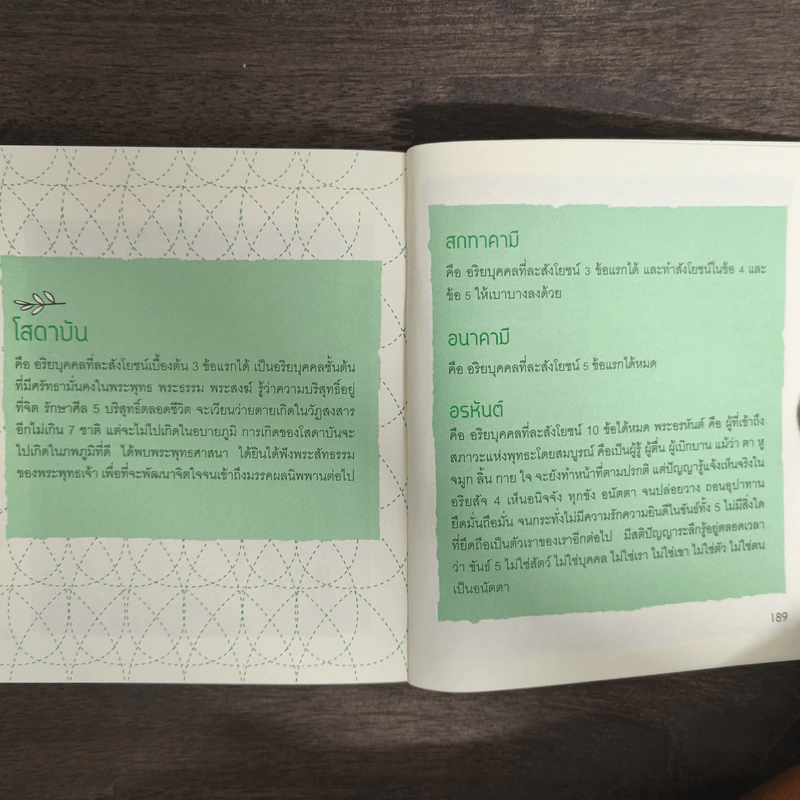 โสดาบัน
คือ อริยบุคคลที่ละสังโยชน์เบื้องต้น 3 ข้อแรกได้ เป็นอริยบุคคลชั้นต้น
ที่มีศรัทธามั่นคงในพระพุทธ พระธรรม พระสงฆ์ รู้ว่าความบริสุทธิ์อยู่
ที่จิต รักษาศีล 5 บริสุทธิ์ตลอดชีวิต จะเวียนว่ายตายเกิดในวัฏสงสาร
อีกไม่เกิน 7 ชาติ แต่จะไม่ไปเกิดในอบายภูมิ การเกิดของโสดาบันจะ
ไปเกิดในภพภูมิที่ดี ได้พบพระพุทธศาสนา ได้ยินได้ฟังพระสัทธรรม
ของพระพุทธเจ้า เพื่อที่จะพัฒนาจิตใจจนเข้าถึงมรรคผลนิพพานต่อไป
สกทาคามี
คือ อริยบุคคลที่ละสังโยชน์ 3 ข้อแรกได้ และทำสังโยชน์ในข้อ 4 และ
ข้อ 5 ให้เบาบางลงด้วย
อนาคามี
คือ อริยบุคคลที่ละสังโยชน์ 5 ข้อแรกได้หมด
อรหันต์
คือ อริยบุคคลที่ละสังโยชน์ 10 ข้อได้หมด พระอรหันต์ คือ ผู้ที่เข้าถึง
สภาวะแห่งพุทธะโดยสมบูรณ์ คือเป็นผู้รู้ ผู้ตื่น ผู้เบิกบาน แม้ว่า ตา หู
จมูก ลิ้น กาย ใจ จะยังทำหน้าที่ตามปรกติ แต่ปัญญารู้แจ้งเห็นจริงใน
อริยสัจ 4 เห็นอนิจจัง ทุกขัง อนัตตา จนปล่อยวาง ถอนอุปาทาน
ยึดมั่นถือมั่น จนกระทั่งไม่มีความรักความยินดีในขันธ์ทั้ง 5 ไม่มีสิ่งใด
ที่ยึดถือเป็นตัวเราของเราอีกต่อไป มีสติปัญญาระลึกรู้อยู่ตลอดเวลา
ว่า ขันธ์ 5 ไม่ใช่สัตว์ ไม่ใช่บุคคล ไม่ใช่เรา ไม่ใช่เขา ไม่ใช่ตัว ไม่ใช่ตน
เป็นอนัตตา
189